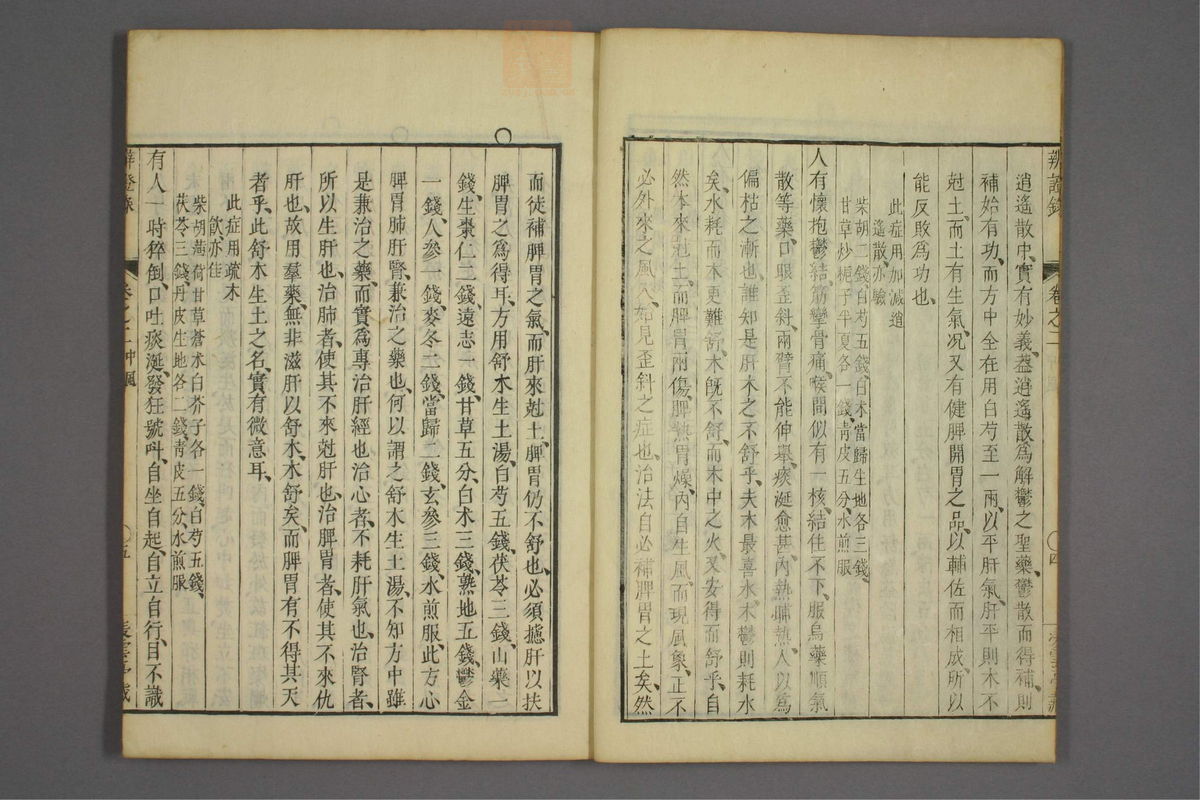 逍遙散中、實有妙義、葢逍遙散、爲解鬱之聖藥、鬱散而得補、則
補始有功、而方中全在用白芍至一兩、以平肝氣、肝平則木不
尅土、而土有生氣、况又有健脾開胃之品、以輔佐而相成、所以
能反敗爲功也、
此症用加減逍
遙散、亦驗
柴胡二錢、白芍五錢、白术當歸生地各三錢、
甘草炒梔子半夏各一錢、青皮五分、水煎服
人有懷抱鬱結、筋攣骨痛、喉間似有一核、結住不下、服烏藥順氣
散等藥、口眼歪斜、兩臂不能伸舉、痰涎愈甚、內熱晡熱、人以爲
偏枯之漸也、誰知是肝木之不舒乎、夫木最喜水、木鬱則耗水
矣、水耗而木更難舒、木旣不舒、而木中之火、又安得而舒乎、自
然木來尅土、而脾胃兩傷、脾熱胃燥、內自生風、而現風象、正不
必外來之風入、始見歪斜之症也、治法自必補脾胃之土矣、然
而徒補脾胃之氣、而肝來尅土、脾胃仍不舒也、必須攄肝以扶
脾胃之爲得耳、方用舒木生土湯、白芍五錢、茯苓三錢、山藥一
錢、生棗仁二錢、遠志一錢、甘草五分、白术三錢、熟地五錢、鬱金
一錢、人參一錢、麥冬二錢、當歸二錢、玄參三錢、水煎服、此方心
脾胃肺肝腎、兼治之藥也、何以謂之舒木生土湯、不知方中雖
是兼治之藥、而實爲專治肝經也、治心者、不耗肝氣也、治腎者、
所以生肝也、治肺者、使其不來尅肝也、治脾胃者、使其不來仇
肝也、故用羣藥、無非滋肝以舒木、木舒矣、而脾胃有不得其天
者乎、此舒木生土之名、實有微意耳、
此症用疏木
飮亦佳
柴胡薄荷甘草蒼术白芥子各一錢、白芍五錢、
茯苓三錢、丹皮生地各二錢、青皮五分、水煎服
有人一時猝倒、口吐痰涎、發狂號叫、自坐自起、自立自行、目不識